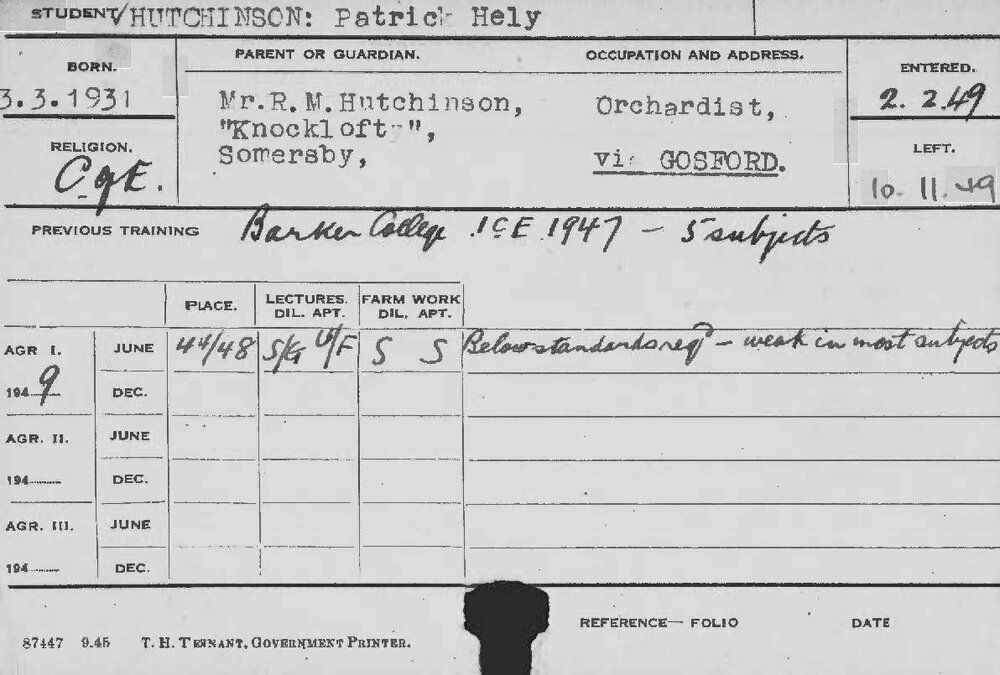 STUDENT/HUTCHINSON: Patrick Hely
BORN.
3.3.1931
PARENT OR GUARDIAN.
Mr.R.M.Hutchinson,
"Knocklofty",
Somersby,
OCCUPATION AND ADDRESS.
Orchardist,
via GOSFORD.
ENTERED.
2.2.49
RELIGION.
C of E.
LEFT.
10.11.49
PREVIOUS TRAINING Barker College I.C.E 1947 - 5 subjects
PLACE. LECTURES. DIL. APT. FARM WORK DIL. APT.
AGR I. JUNE 44/48 S/G U/F S S Below standards reqd - weak in most subjects
1949 DEC.
AGR. II. JUNE
194 DEC.
AGR. III. JUNE
194 DEC.
REFERENCE— FOLIO DATE
87447 9.45 T. H. TENNANT, GOVERNMENT PRINTER.